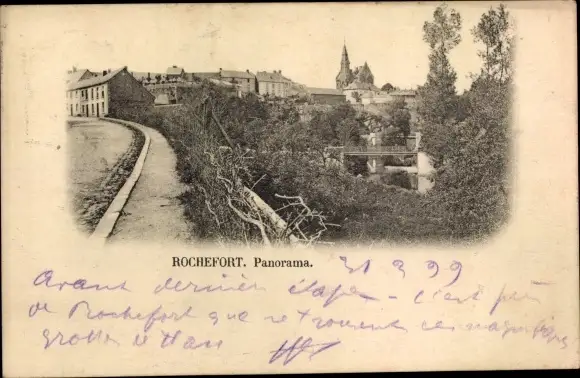 ROCHEFORT. Panorama.
31 3 99
avant dernière étape - c'est près
de Rochefort que se trouvent ces magnifiques
grottes de Han